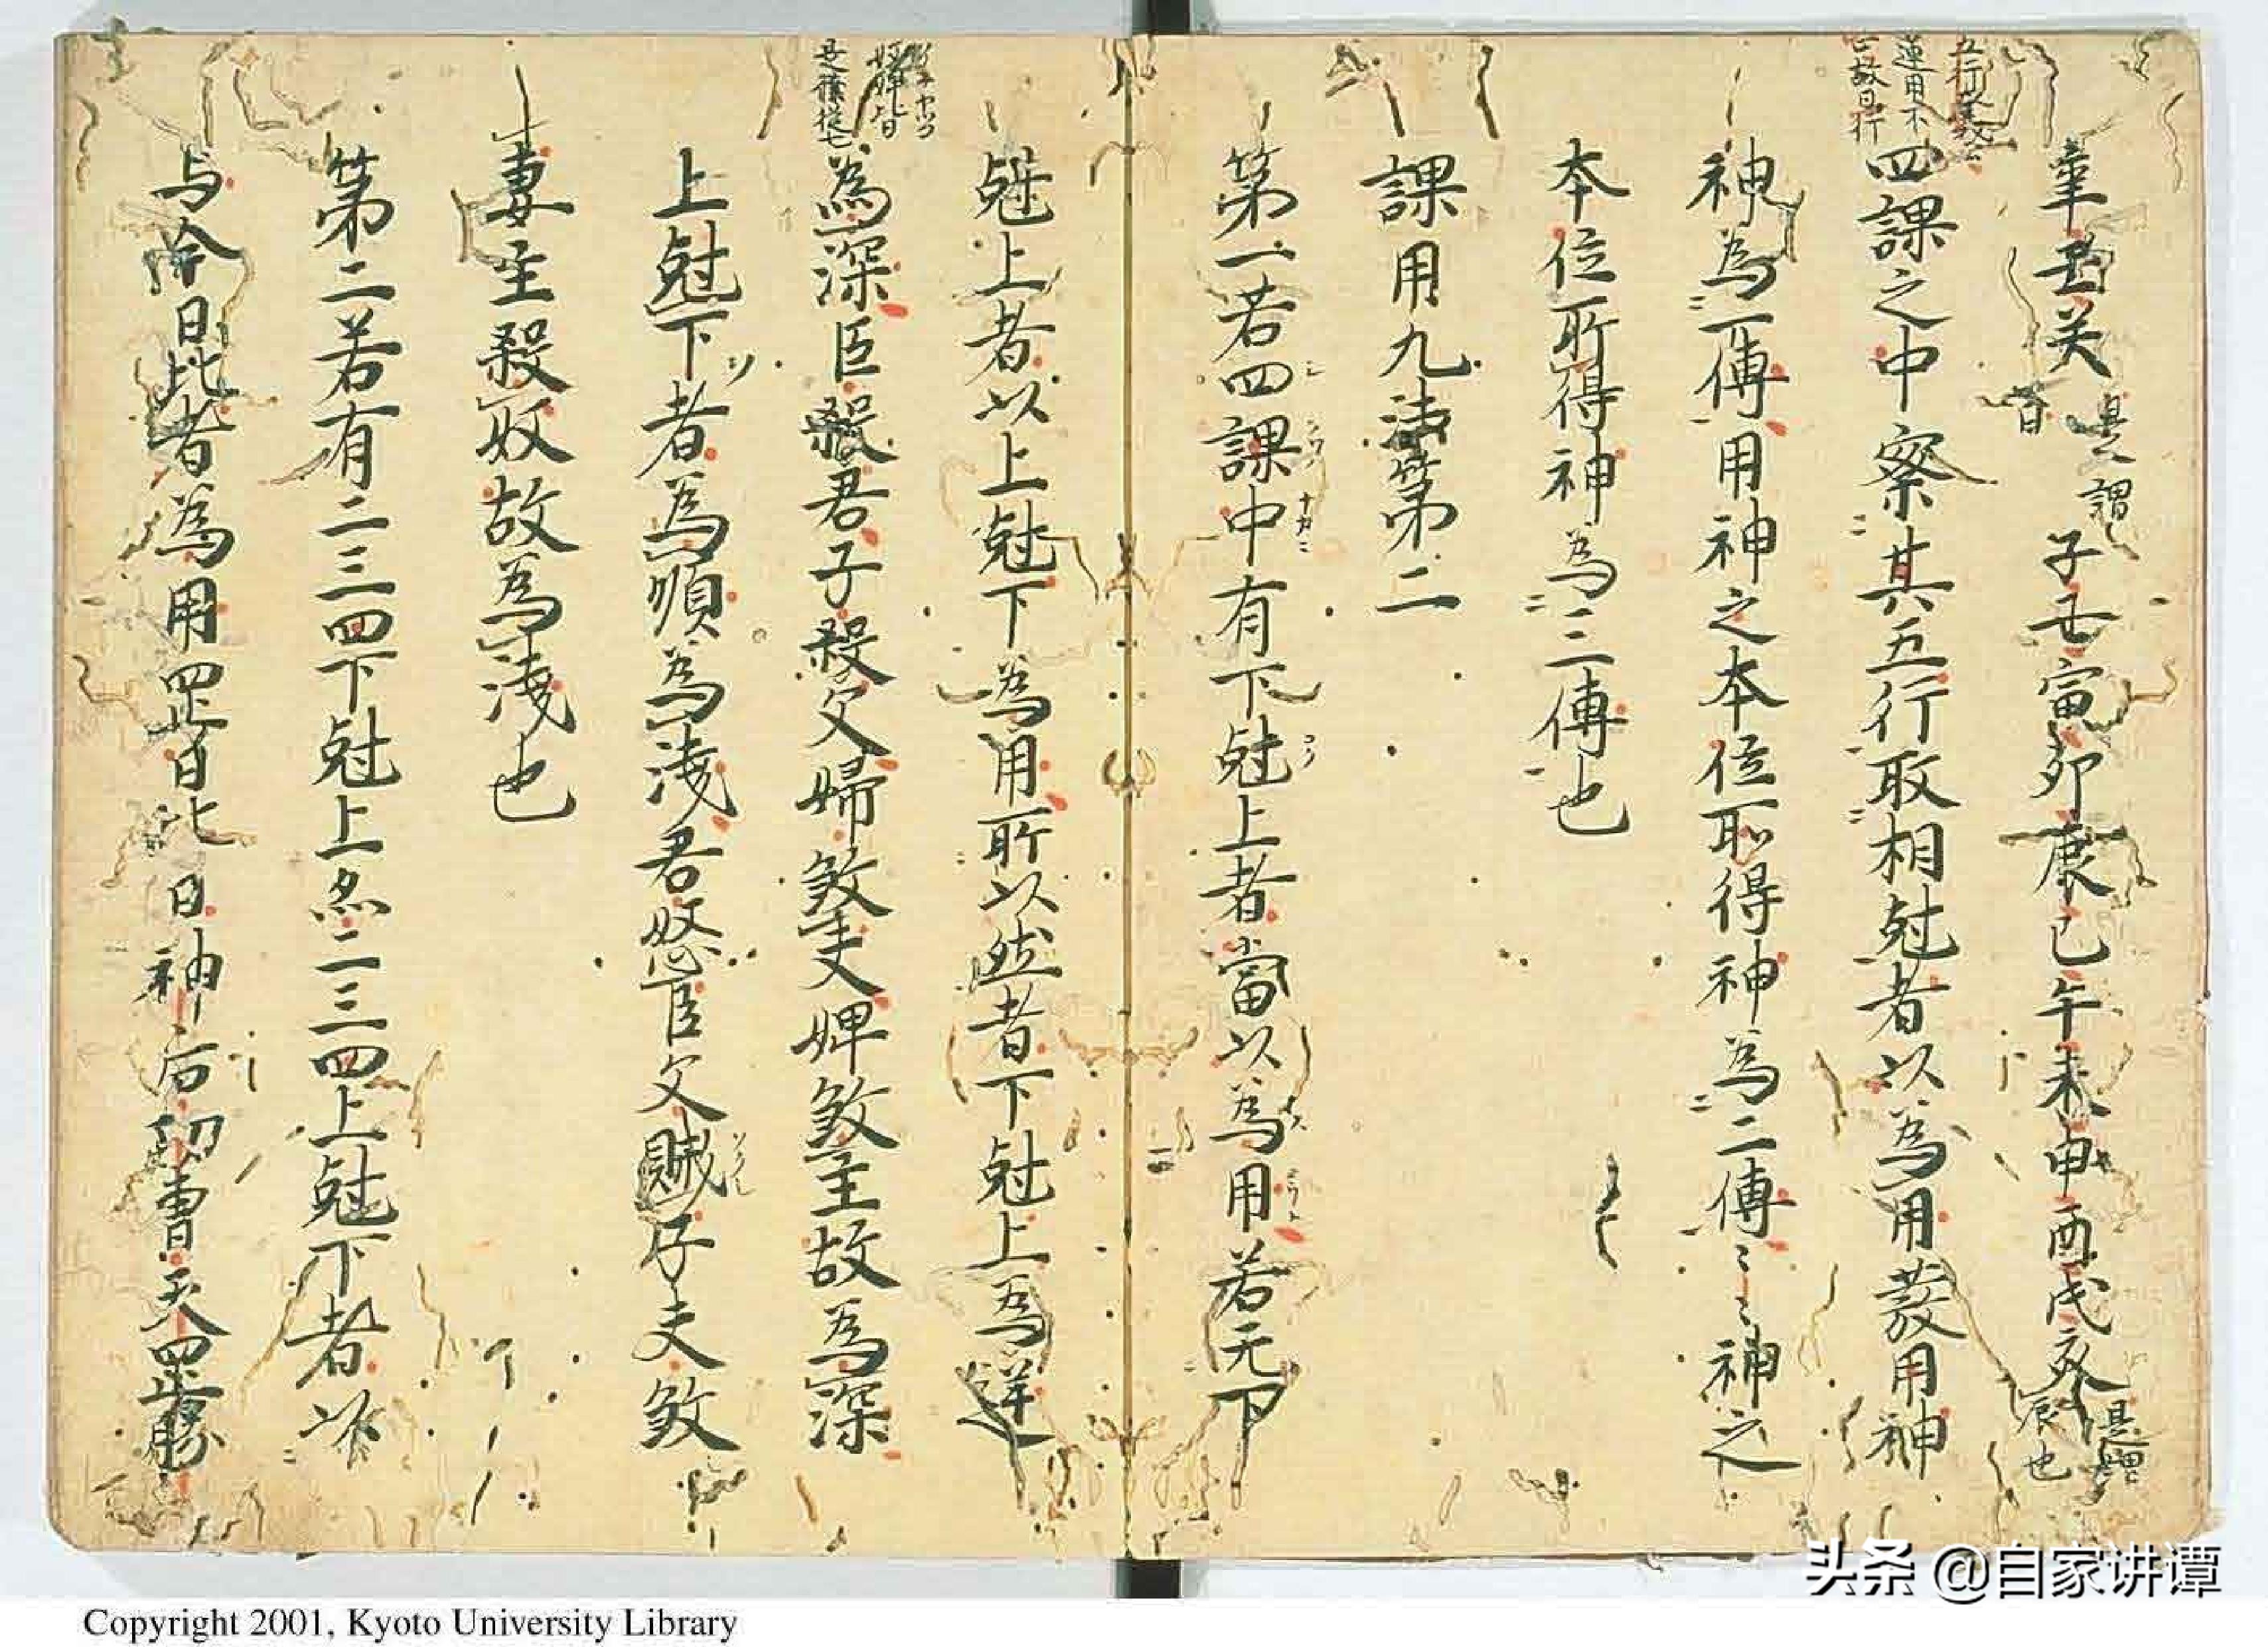 五行
運用不
故曰行
辛壬癸 是謂
日 子丑寅卯辰巳午未申酉戌亥 是謂
辰也
四課之中察其五行取相尅者以為用發用神
神為一傳用神之本位所得神為二傳〻〻神之
本位所得神為三傳也
課用九法第二
第一若四課中有下尅上者當以為用若无下
尅上者以上尅下為用所以然者下尅上為逆
為深臣殺君子殺父婦煞夫婢煞主故為深
上尅下者為順為淺君怒臣父賊子夫煞
妻主殺奴故為淺也
第二若有二三四下尅上忽二三四上尅下者以
与今日比者為用罡日比日神后功曹天罡勝
头条 @自家讲谭
Copyright 2001, Kyoto University Library